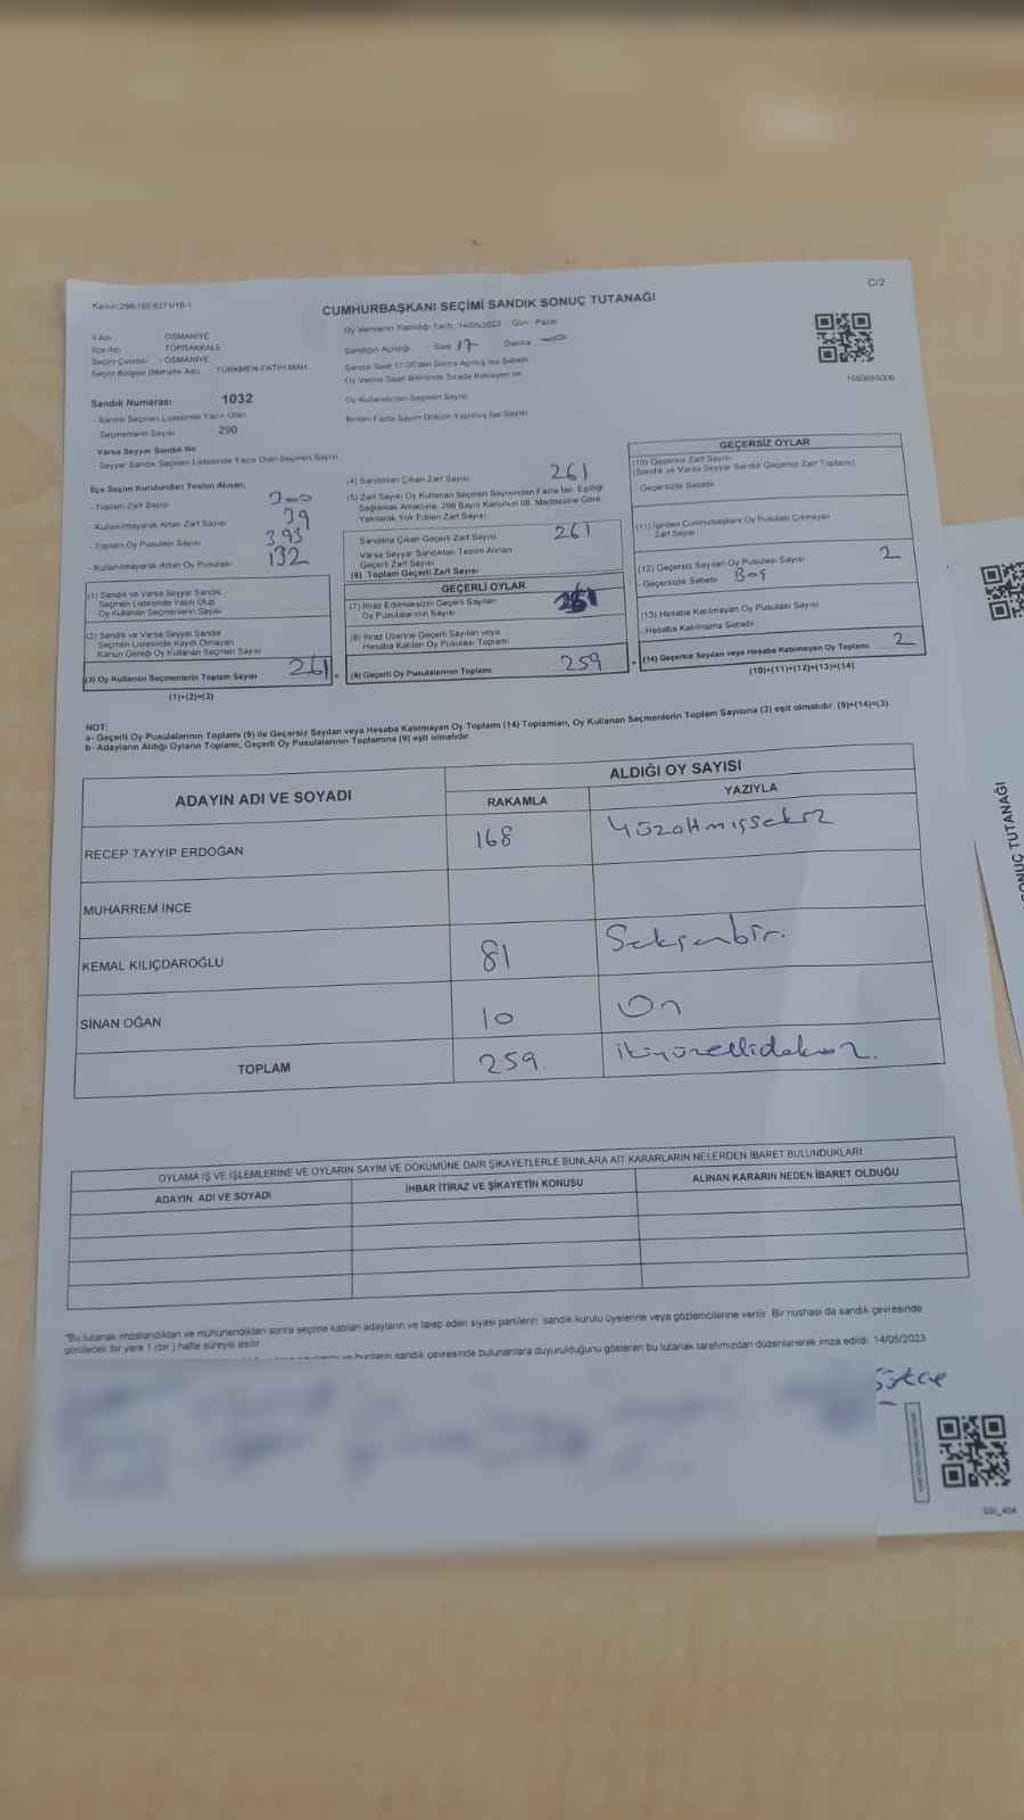 C/2
CUMHURBAŞKANI SEÇİMİ SANDIK SONUÇ TUTANAĞI
Oy Vermenin Yapıldığı Tarih : 14/05/2023 Gün : Pazar
İl Adı : OSMANİYE
İlçe Adı : TOPRAKKALE
Seçim Çevresi : OSMANİYE
Seçim Bölgesi (Mahalle Adı) : TÜRKMEN-FATİH MAH.
Sandığın Açıldığı Saat 17 Dakika
Sandık Numarası 1032
Sandık Seçmen Listesinde Yazılı Olan
Seçmenlerin Sayısı 290
Varsa Seyyar Sandık No
- Seyyar Sandık Seçmen Listesinde Yazılı Olan Seçmen Sayısı
İlçe Seçim Kurulundan Teslim Alınan;
- Toplam Zarf Sayısı 300
- Kullanılmayarak Artan Zarf Sayısı 39
- Toplam Oy Pusulası Sayısı 393
- Kullanılmayarak Artan Oy Pusulası 132
(1) Sandık ve Varsa Seyyar Sandık
Seçmen Listesinde Yazılı Olup
Oy Kullanan Seçmenlerin Sayısı
(2) Sandık ve Varsa Seyyar Sandık
Seçmen Listesinde Kayıtlı Olmayan
Kanun Gereği Oy Kullanan Seçmen Sayısı
(3) Oy Kullanan Seçmenlerin Toplam Sayısı 261
(1)+(2)=(3)
(4) Sandıktan Çıkan Zarf Sayısı 261
(5) Zarf Sayısı Oy Kullanan Seçmen Sayısından Fazla İse, Eşitliği
Sağlamak Amacıyla, 298 Sayılı Kanunun 98. Maddesine Göre
Yakılarak Yok Edilen Zarf Sayısı
Sandıkta Çıkan Geçerli Zarf Sayısı 261
Varsa Seyyar Sandıktan Teslim Alınan
Geçerli Zarf Sayısı
(6) Toplam Geçerli Zarf Sayısı
GEÇERLİ OYLAR
(7) İtiraz Edilmeksizin Geçerli Sayılan
Oy Pusulalarının Sayısı
(8) İtiraz Üzerine Geçerli Sayılan veya
Hesaba Katılan Oy Pusulası Toplamı
(9) Geçerli Oy Pusulalarının Toplamı 259
GEÇERSİZ OYLAR
(10) Geçersiz Zarf Sayısı
(Sandık ve Varsa Seyyar Sandık Geçersiz Zarf Toplamı)
- Geçersizlik Sebebi
(11) İçinden Cumhurbaşkanı Oy Pusulası Çıkmayan
Zarf Sayısı
(12) Geçersiz Sayılan Oy Pusulası Sayısı 2
- Geçersizlik Sebebi Boş
(13) Hesaba Katılmayan Oy Pusulası Sayısı
- Hesaba Katılmama Sebebi
(14) Geçersiz Sayılan veya Hesaba Katılmayan Oy Toplamı 2
(10)+(11)+(12)+(13)=(14)
NOT:
a- Geçerli Oy Pusulalarının Toplamı (9) ile Geçersiz Sayılan veya Hesaba Katılmayan Oy Toplamı (14) Toplamları, Oy Kullanan Seçmenlerin Toplam Sayısına (3) eşit olmalıdır. (9)+(14)=(3)
b- Adayların Aldığı Oyların Toplamı, Geçerli Oy Pusulalarının Toplamına (9) eşit olmalıdır.
ADAYIN ADI VE SOYADI ALDIĞI OY SAYISI
RAKAMLA YAZIYLA
RECEP TAYYİP ERDOĞAN 168 Yüzaltmışsekiz
MUHARREM İNCE
KEMAL KILIÇDAROĞLU 81 Seksenbir.
SİNAN OĞAN 10 On
TOPLAM 259. ikiyüzellidokuz.
OYLAMA İŞ VE İŞLEMLERİNE VE OYLARIN SAYIM VE DÖKÜMÜNE DAİR ŞİKAYETLERLE BUNLARA AİT KARARLARIN NELERDEN İBARET BULUNDUKLARI
ADAYIN ADI VE SOYADI İHBAR İTİRAZ VE ŞİKAYETİN KONUSU ALINAN KARARIN NEDEN İBARET OLDUĞU
"Bu tutanak imzalandıktan ve mühürlendikten sonra seçime katılan adayların ve talep eden siyasi partilerin sandık kurulu üyelerine veya gözlemcilerine verilir. Bir nüshası da sandık çevresinde
görülecek bir yere 1 (bir) hafta süreyle asılır.
bunların sandık çevresinde bulunanlara duyurulduğunu gösteren bu tutanak tarafımızdan düzenlenerek imza edildi. 14/05/2023
SONUÇ TUTANAĞI